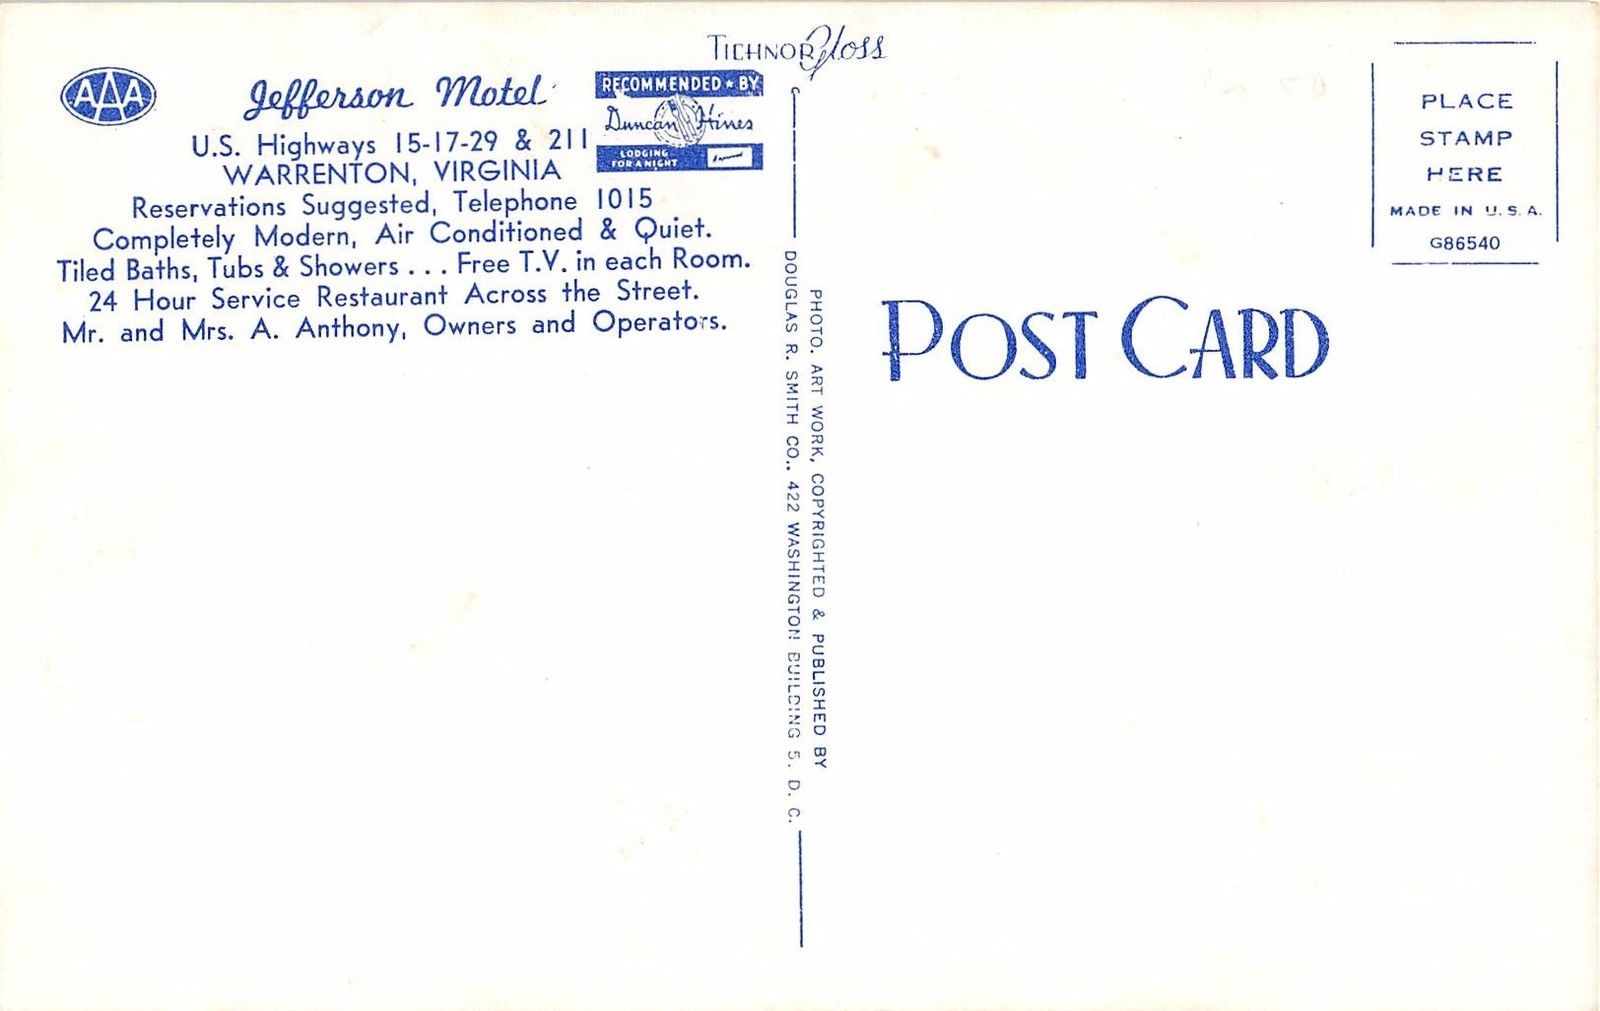 TICHNOR Gloss
AAA
Jefferson Motel
RECOMMENDED ★ BY
Duncan Hines
LODGING
FOR A NIGHT
U.S. Highways 15-17-29 & 211
WARRENTON, VIRGINIA
Reservations Suggested, Telephone 1015
Completely Modern, Air Conditioned & Quiet.
Tiled Baths, Tubs & Showers . . . Free T.V. in each Room.
24 Hour Service Restaurant Across the Street.
Mr. and Mrs. A. Anthony, Owners and Operators.
PHOTO, ART WORK, COPYRIGHTED & PUBLISHED BY
DOUGLAS R. SMITH CO., 422 WASHINGTON BUILDING 5, D. C.
PLACE
STAMP
HERE
MADE IN U.S.A.
G86540
POST CARD